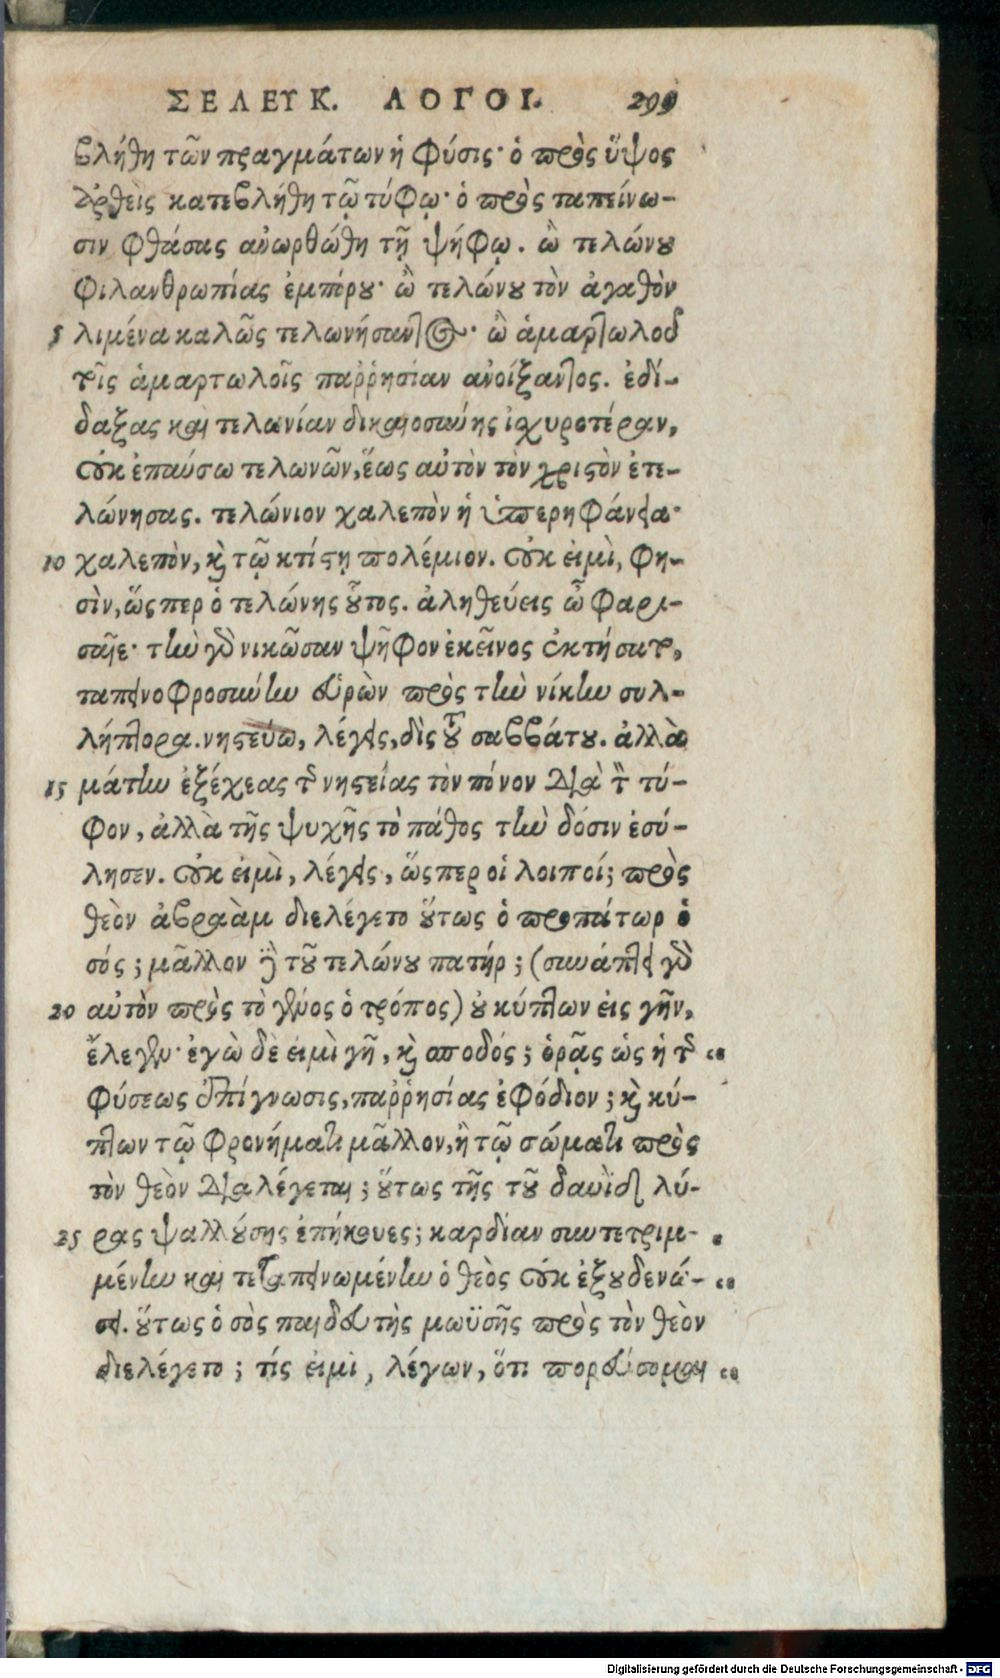 ΣΕΛΕΥΚ. ΛΟΓΟΙ. 299
βλήθη τῶν πραγμάτων ἡ φύσις· ὁ πρὸς ὕψος
ἀρθεὶς κατεβλήθη τῷ τύφῳ· ὁ πρὸς ταπείνω-
σιν φθάσας ἀνωρθώθη τῇ ψήφῳ. ὢ τελώνου
φιλανθρωπίας ἐμπόρου· ὢ τελώνου τὸν ἀγαθὸν
5 λιμένα καλῶς τελωνήσαντος· ὢ ἁμαρτωλοῦ
τοῖς ἁμαρτωλοῖς παῤῥησίαν ἀνοίξαντος. ἐδί-
δαξας καὶ τελωνίαν δικαιοσύνης ἰσχυροτέραν,
οὐκ ἐπαύσω τελωνῶν, ἕως αὐτὸν τὸν χριστὸν ἐτε-
λώνησας. τελώνιον χαλεπὸν ἡ ὑπερηφάνεια·
10 χαλεπὸν, καὶ τῷ κτίστῃ πολέμιον. οὐκ εἰμὶ, φη-
σὶν, ὥσπερ ὁ τελώνης οὗτος. ἀληθεύεις ὦ φαρι-
σαῖε· τὴν γὰρ νικῶσαν ψῆφον ἐκεῖνος ἐκτήσατο,
ταπεινοφροσύνην εὑρὼν πρὸς τὴν νίκην συλ-
λήπτορα. νηστεύω, λέγεις, δὶς τοῦ σαββάτου. ἀλλὰ
15 μάτην ἐξέχεας τῆς νηστείας τὸν πόνον διὰ τὸν τύ-
φον, ἀλλὰ τῆς ψυχῆς τὸ πάθος τὴν δόσιν ἐσύ-
λησεν. οὐκ εἰμὶ, λέγεις, ὥσπερ οἱ λοιποί; πρὸς
θεὸν ἀβραὰμ διελέγετο οὕτως ὁ προπάτωρ ὁ
σός; μᾶλλον δὲ τοῦ τελώνου πατήρ; (συνάπτει γὰρ
20 αὐτὸν πρὸς τὸ γένος ὁ τρόπος) οὐ κύπτων εἰς γῆν,
ἔλεγεν· ἐγὼ δὲ εἰμὶ γῆ, καὶ σποδός; ὁρᾷς ὡς ἡ τῆς “
φύσεως ἐπίγνωσις, παῤῥησίας ἐφόδιον; καὶ κύ-
πτων τῷ φρονήματι μᾶλλον, ἢ τῷ σώματι πρὸς
τὸν θεὸν διαλέγεται; οὕτως τῆς τοῦ δαυὶδ λύ-
25 ρας ψαλλούσης ἐπήκουες; καρδίαν συντετριμ-
μένην καὶ τεταπεινωμένην ὁ θεὸς οὐκ ἐξουδενώ- “
σει. οὕτως ὁ σὸς παιδευτὴς μωϋσῆς πρὸς τὸν θεὸν
διελέγετο; τίς εἰμι, λέγων, ὅτι πορεύσομαι “
Digitalisierung gefördert durch die Deutsche Forschungsgemeinschaft - DFG